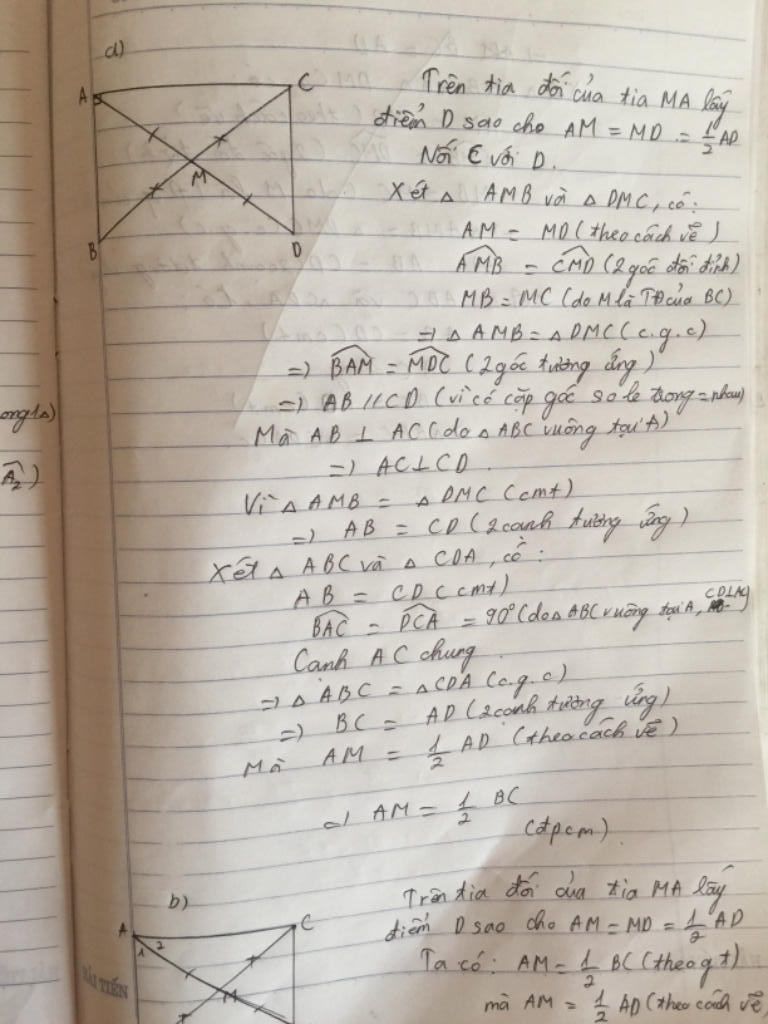 a)
A
C
M
B
D
Trên tia đối của tia MA lấy
điểm D sao cho AM = MD = 1/2 AD
Nối C với D.
Xét △ AMB và △ DMC, có:
AM = MD (theo cách vẽ)
AMB = CMD (2 góc đối đỉnh)
MB = MC (do M là TĐ của BC)
=> △ AMB = △ DMC (c.g.c)
=> BAM = MDC (2 góc tương ứng)
=> AB // CD (vì có cặp góc so le trong = nhau)
Mà AB ⊥ AC (do △ ABC vuông tại A)
=> AC ⊥ CD.
Vì △ AMB = △ DMC (cmt)
=> AB = CD (2 cạnh tương ứng)
Xét △ ABC và △ CDA, có:
AB = CD (cmt)
BAC = DCA = 90° (do △ ABC vuông tại A, CD⊥AC)
Cạnh AC chung
=> △ ABC = △ CDA (c.g.c)
=> BC = AD (2 cạnh tương ứng)
Mà AM = 1/2 AD (theo cách vẽ)
=> AM = 1/2 BC
(đpcm)
ong 1△)
A₂)
b)
A
1 2
C
M
Trên tia đối của tia MA lấy
điểm D sao cho AM = MD = 1/2 AD
Ta có: AM = 1/2 BC (theo gt)
mà AM = 1/2 AD (theo cách vẽ)
HẢI TIẾN